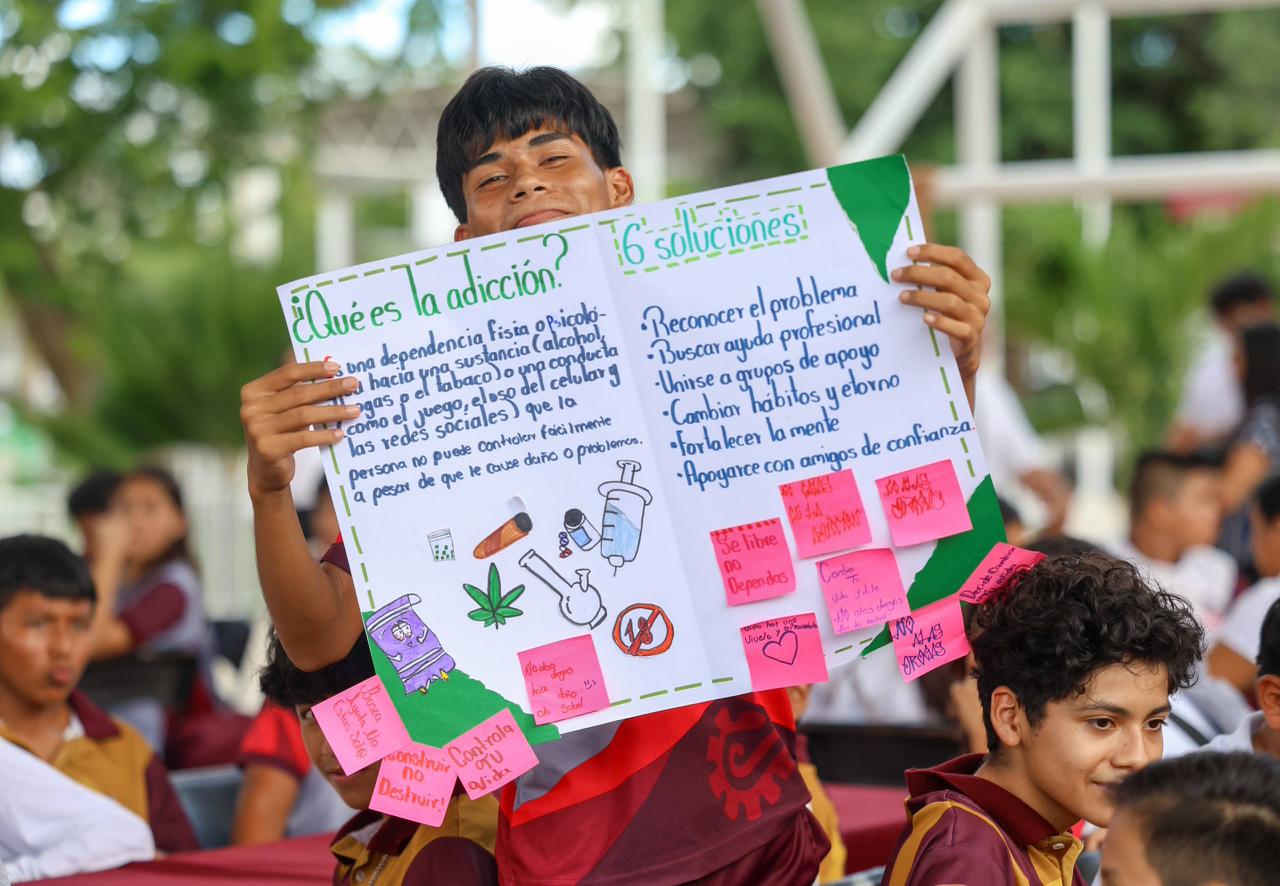 ¿Qué es la adicción?
una dependencia fisia o Psicoló-
hacia una sustancia (alcohol,
ogas o el tabaco) o una conducta
como el juego, el uso del celular y
las redes sociales) que la
persona no puede controlar fácilmente
a pesar de que le cause daño o problemas.
18
6 soluciones
•Reconocer el problema
•Buscar ayuda profesional
•Unirse a grupos de apoyo
•Cambiar hábitos y etorno
•Fortalecer la mente
•Apoyarce con amigos de confianza.
Se libre
no
Dependas
Cambia
Tu
Vida y dile
NO alas drogas
NO ALAS
DROGAS
Vivelo y
No
hace daño
Busca
Ayuda No
Construir
no
Destruir!
Controla
tU
vida